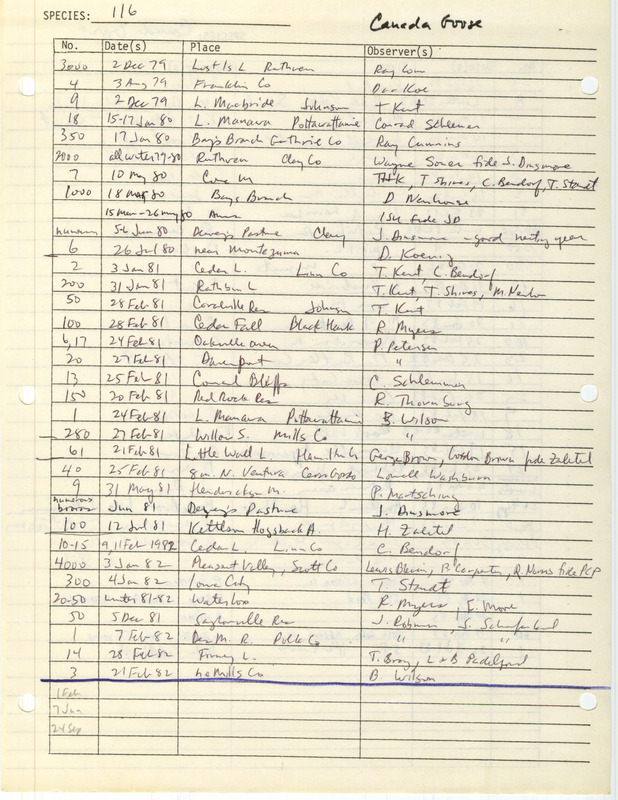 SPECIES: 116 Canada Goose
No. Date(s) Place Observer(s)
3000 2 Dec 79 Lost Is L Ruthven Ray
4 3 Aug 79 Franklin Co
9 2 Dec 79 L. Macbride Johnson T Kent
18 15-17 Jan 80 L. Manawa Pottawattamie Conrad Schlemmer
350 17 Jan 80 Bays Branch Guthrie Co Ray Cummins
2000 all winter 79-80 Ruthven Clay Co Wayne fide J. Dinsmore
7 10 May 80 Cone M THK, T Shires, C. Bendorf, T. Staudt
1000 18 Mar 80 Bays Branch D Newhouse
15 Mar-26 May 80 Ames ISU fide JD
numerous 5-6 Jun 80 Dewey's Pasture Clay J. Dinsmore - good nesting year
6 26 Jul 80 near Montezuma D. Koenig
2 3 Jan 81 Cedar L. Linn Co T. Kent C. Bendorf
200 31 Jan 81 Rathbun L T. Kent, T. Shires, M. Newlon
50 28 Feb 81 Coralville Res Johnson T Kent
100 28 Feb 81 Cedar Fall Black Hawk R Myers
6,17 24 Feb 81 Oakville area P. Petersen
20 27 Feb 81 Davenport "
13 25 Feb 81 Council Bluffs C. Schlemmer
150 20 Feb 81 Red Rock Res R. Thornburg
1 24 Feb 81 L. Manawa Pottawattamie B. Wilson
280 27 Feb 81 Willow S. Mills Co "
61 21 Feb 81 Little Wall L Hamilton George Brown, Gordon Brown fide Zaletel
40 25 Feb 81 8 mi N. Ventura Cerro Gordo Lowell Washburn
9 31 May 81 Hendrickson M. P. Martsching
numerous broods Jun 81 Dewey's Pasture J. Dinsmore
100 12 Jul 81 Kettleson Hogsback A. H. Zaletel
10-15 9,11 Feb 1982 Cedar L. Linn Co C. Bendorf
4000 3 Jan 82 Pleasant Valley, Scott Co Lewis Blevins, B. Carpenter, fide PCP
300 4 Jan 82 Iowa City T. Staudt
20-50 winter 81-82 Waterloo R. Myers, E. Moore
50 5 Dec 81 Saylorville Res J.
1 7 Feb 82 Des M. R. Polk Co. " "
14 28 Feb 82 Forney L. T. Bray, L + B Padelford
3 21 Feb 82 Mills Co B. Wilson
1 Feb
7 Jun
24 Sep